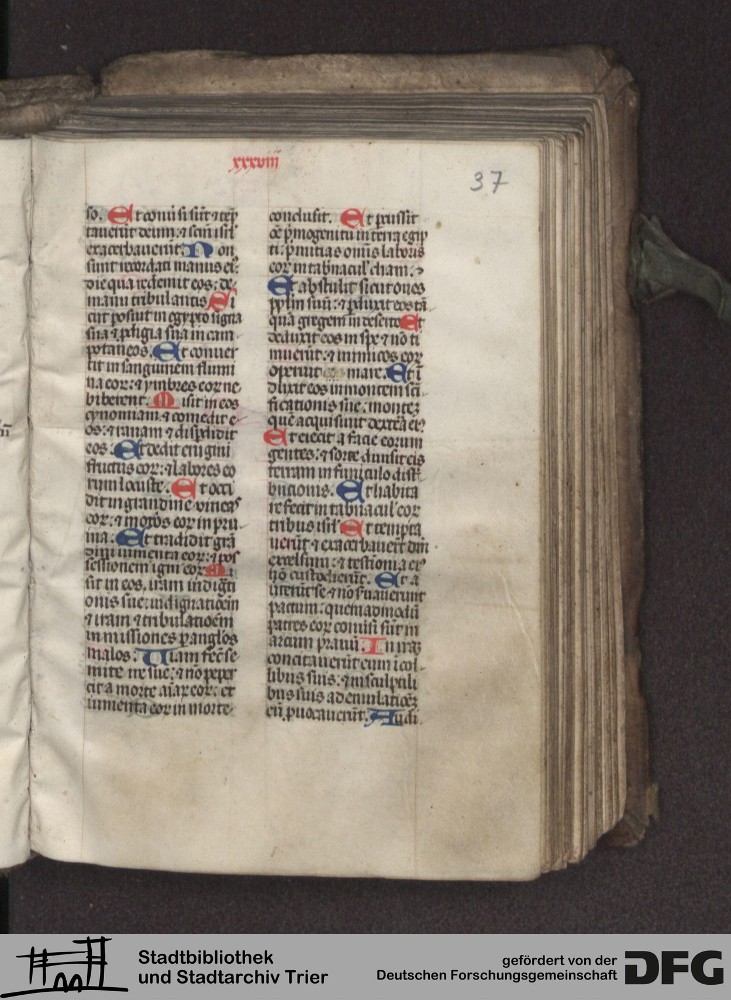 xxxviii
37
so. Et conv̄si sūt ⁊ tēp
tauerūt deum: ⁊ sc̄m isrl̄
exacerbauerūt. Non
sunt recordati manus ei:
die qua redemit eos: de
manu tribulantis. Si
cut posuit in egypto signa
sua ⁊ ꝓdigia sua in cam
po taneos. Et conuer
tit in sanguinem flumi
na eoꝝ: ⁊ ymbres eoꝝ ne
biberent. Misit in eos
cynomiam ⁊ comedit e
os: ⁊ ranam ⁊ disp̄didit
eos. Et dedit erugini
fructus eoꝝ: ⁊ labores eo
rum locuste. Et occi
dit in grandine vineas
eoꝝ: ⁊ moros eoꝝ in pru
ina. Et tradidit grā
dini iumenta eoꝝ: ⁊ pos
sessionem igni eoꝝ. Mi
sit in eos, iram indigti
onis sue: indignatiōem
⁊ iram ⁊ tribulatiōem
in missiones ꝑ anglōs
malos. Viam fec̄ se
mite ire sue: ⁊ nō peper
cit a morte aīaꝝ eoꝝ: et
iumenta eoꝝ in morte
conclusit. Et ꝑcussit
oē pͥmogenitū in terra egip
ti: pͥmitias omīs laboris
eoꝝ in tabnacul̄ cham.
Et abstulit sicut oues
ppl̄m suū: ⁊ ꝑduxit eos tā
quā gregem in deserto. Et
deduxit eos in spe ⁊ nō ti
muerūt: ⁊ inimicos eoꝝ
operuit mare. Et ī
duxit eos in montem sc̄i
ficationis sue: montez
quē acquisiuit dextera ei:
Et eiecit a facie eorum
gentes: ⁊ sorte diuisit eis
terram in funiculo dist̄
butionis. Et habita
re fecit in tabnacul̄ eoꝝ
tribus isrl̄. Et tempta
uerūt ⁊ exacerbauerūt dm̄
excelsum: ⁊ testionia ei:
nō custodierūt. Et a
uterūt se ⁊ nō suauerunt
pactum: quemadmodū
patres eoꝝ conūsi sūt in
arcum prauū. In iraꝫ
concitauerūt eum ī col
libus suis: ⁊ in sculptili
bus suis ad emulatiōeꝫ
eū ꝓuocauerūt. Audi
Stadtbibliothek
und Stadtarchiv Trier
gefördert von der
Deutschen Forschungsgemeinschaft
DFG